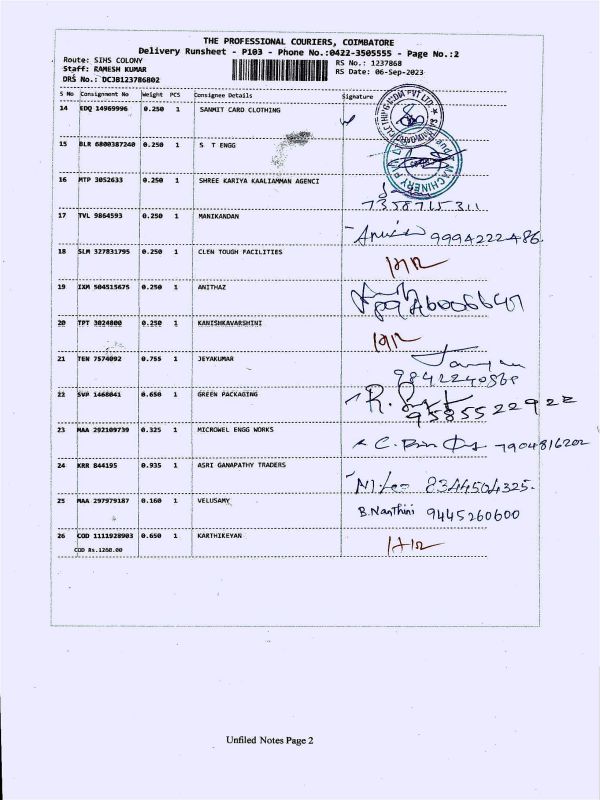 THE PROFESSIONAL COURIERS, COIMBATORE
Delivery Runsheet - P103 - Phone No.:0422-3505555 - Page No.:2
Route: SIHS COLONY
RS No.: 1237868
Staff: RAMESH KUMAR
RS Date: 06-Sep-2023
DRS No.: DCJB123786802
S No Consignment No Weight PCS Consignee Details Signature
14 EDQ 14969996 0.250 1 SANMIT CARD CLOTHING
15 BLR 6800387240 0.250 1 S T ENGG
MACHINERY
16 MTP 3052633 0.250 1 SHREE KARIYA KAALIAMMAN AGENCI
7358715311
17 TVL 9864593 0.250 1 MANIKANDAN
9994222486.
18 SLM 327831795 0.250 1 CLEN TOUGH FACILITIES
19 IXM 504515675 0.250 1 ANITHAZ
20 TPT 3024800 0.250 1 KANISHKAVARSHINI
21 TEN 7574092 0.755 1 JEYAKUMAR
9842240568
22 SVP 1468041 0.650 1 GREEN PACKAGING
9585522922
23 MAA 292109739 0.325 1 MICROWEL ENGG WORKS
7904816202
24 KRR 844195 0.935 1 ASRI GANAPATHY TRADERS
8344504325.
25 MAA 297979187 0.160 1 VELUSAMY
B.Nanthini 9445260600
26 COD 1111928903 0.650 1 KARTHIKEYAN
COD Rs.1260.00
Unfiled Notes Page 2